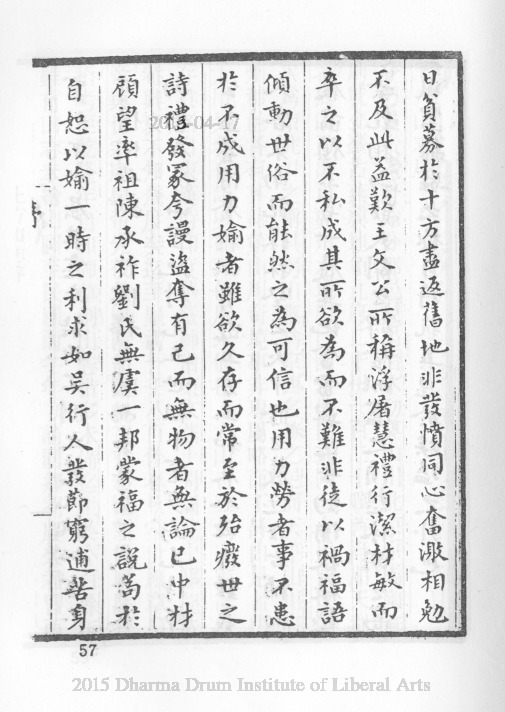 日負募於十方盡返舊地非發憤同心奮激相勉
不及此益歎王文公所稱浮屠慧禮行潔材敏而
卒之以不私成其所欲為而不難非徒以禍福語
傾動世俗而能然之為可信也用力勞者事不患
於不成用力媮者雖欲久存而常至於殆癈世之
詩禮發冢夸謾盜奪有己而無物者無論已中材
顧望率祖陳承祚劉氏無虞一邦蒙福之說苟於
自恕以媮一時之利求如吳行人發節窮逋
序
一
57
2015-04-17
2015 Dharma Drum Institute of Liberal Arts